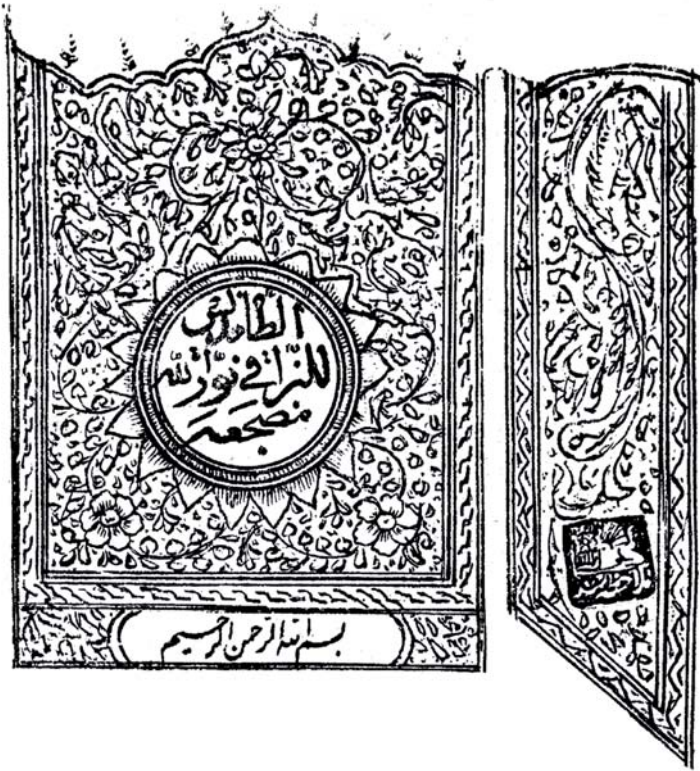 الطاقديس
للنّراقي نوّر الله
مضجعه
بسم الله الرحمن الرحيم